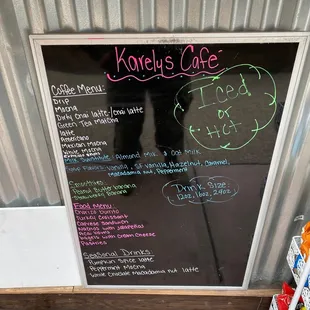 Karelys Cafe
Coffee Menu:
Drip
Mocha
Dirty chai latte/chai latte
Green Tea Matcha
latte
Americano
Mexican Mocha
White Mocha
Iced or Hot
Milk Substitute: Almond Milk & Oat Milk
Vanilla, Hazelnut, Caramel,
Macadamia nut, Peppermint
Smoothies
Peanut butter banana
Strawberry banana
Drink Size:
12oz, 16oz, 24oz
Food Menu:
Chorizo burrito
Turkey Croissant
Caprese Sandwich
Nachos with Jalapeños
Acai Bowls
Bagels with Cream Cheese
Pastries
Seasonal Drinks
Pumpkin Spice latte
Peppermint Mocha
White Chocolate Macadamia nut latte